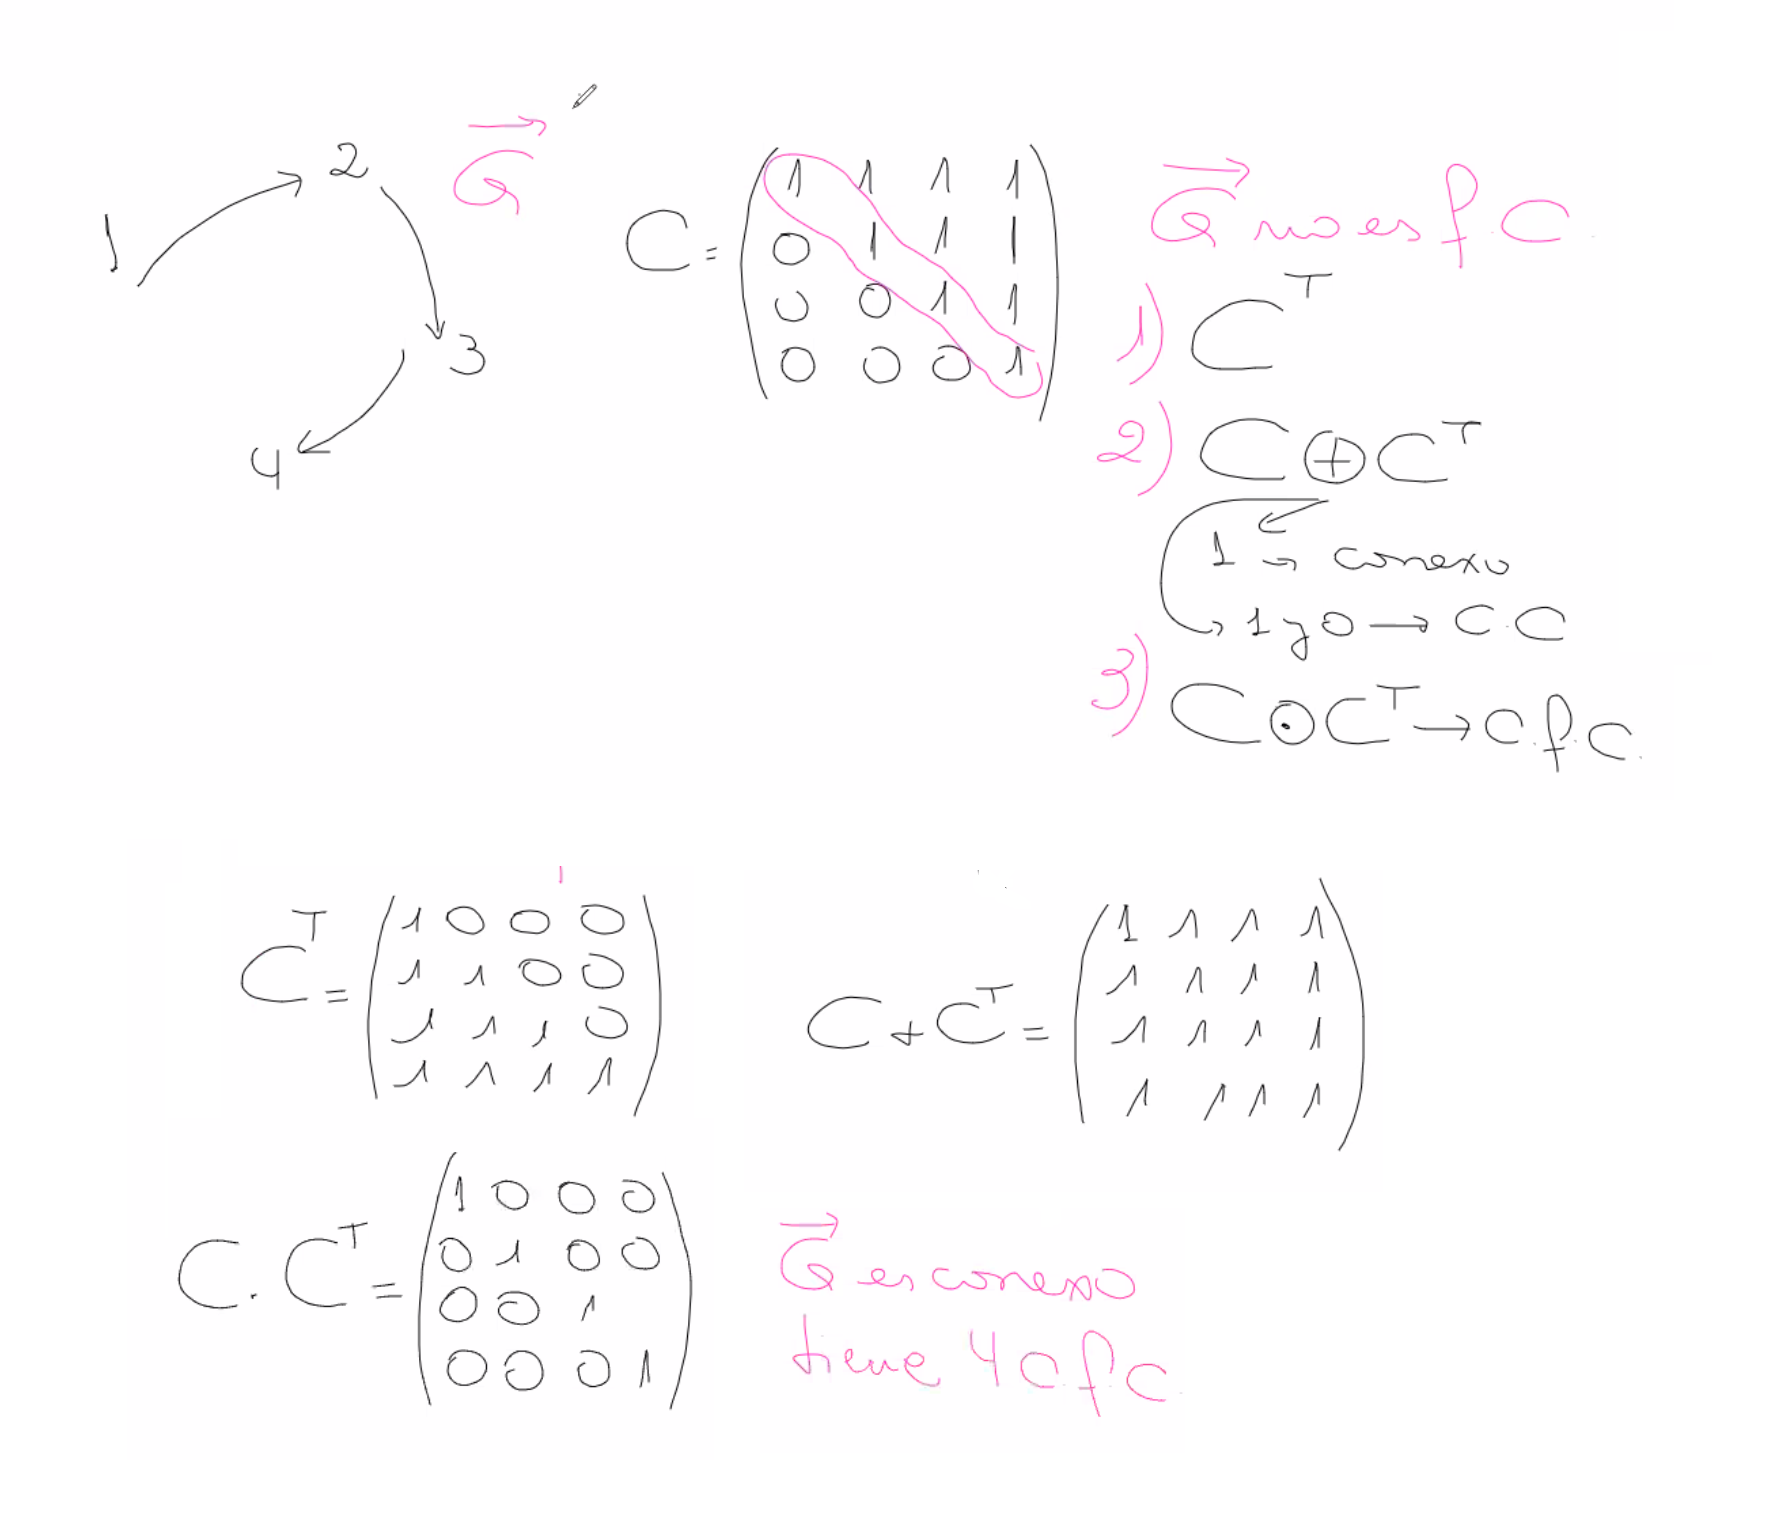 1
2
3
4
G
C = ( 1 1 1 1
0 1 1 1
0 0 1 1
0 0 0 1 )
G no es f.C.
1) C^T
2) C ⊕ C^T
1 → conexo
1 y 0 → C.C
3) C ⊙ C^T → C.f.C.
C^T = ( 1 0 0 0
1 1 0 0
1 1 1 0
1 1 1 1 )
C + C^T = ( 1 1 1 1
1 1 1 1
1 1 1 1
1 1 1 1 )
C . C^T = ( 1 0 0 0
0 1 0 0
0 0 1
0 0 0 1 )
G es conexo
tiene 4 C f C